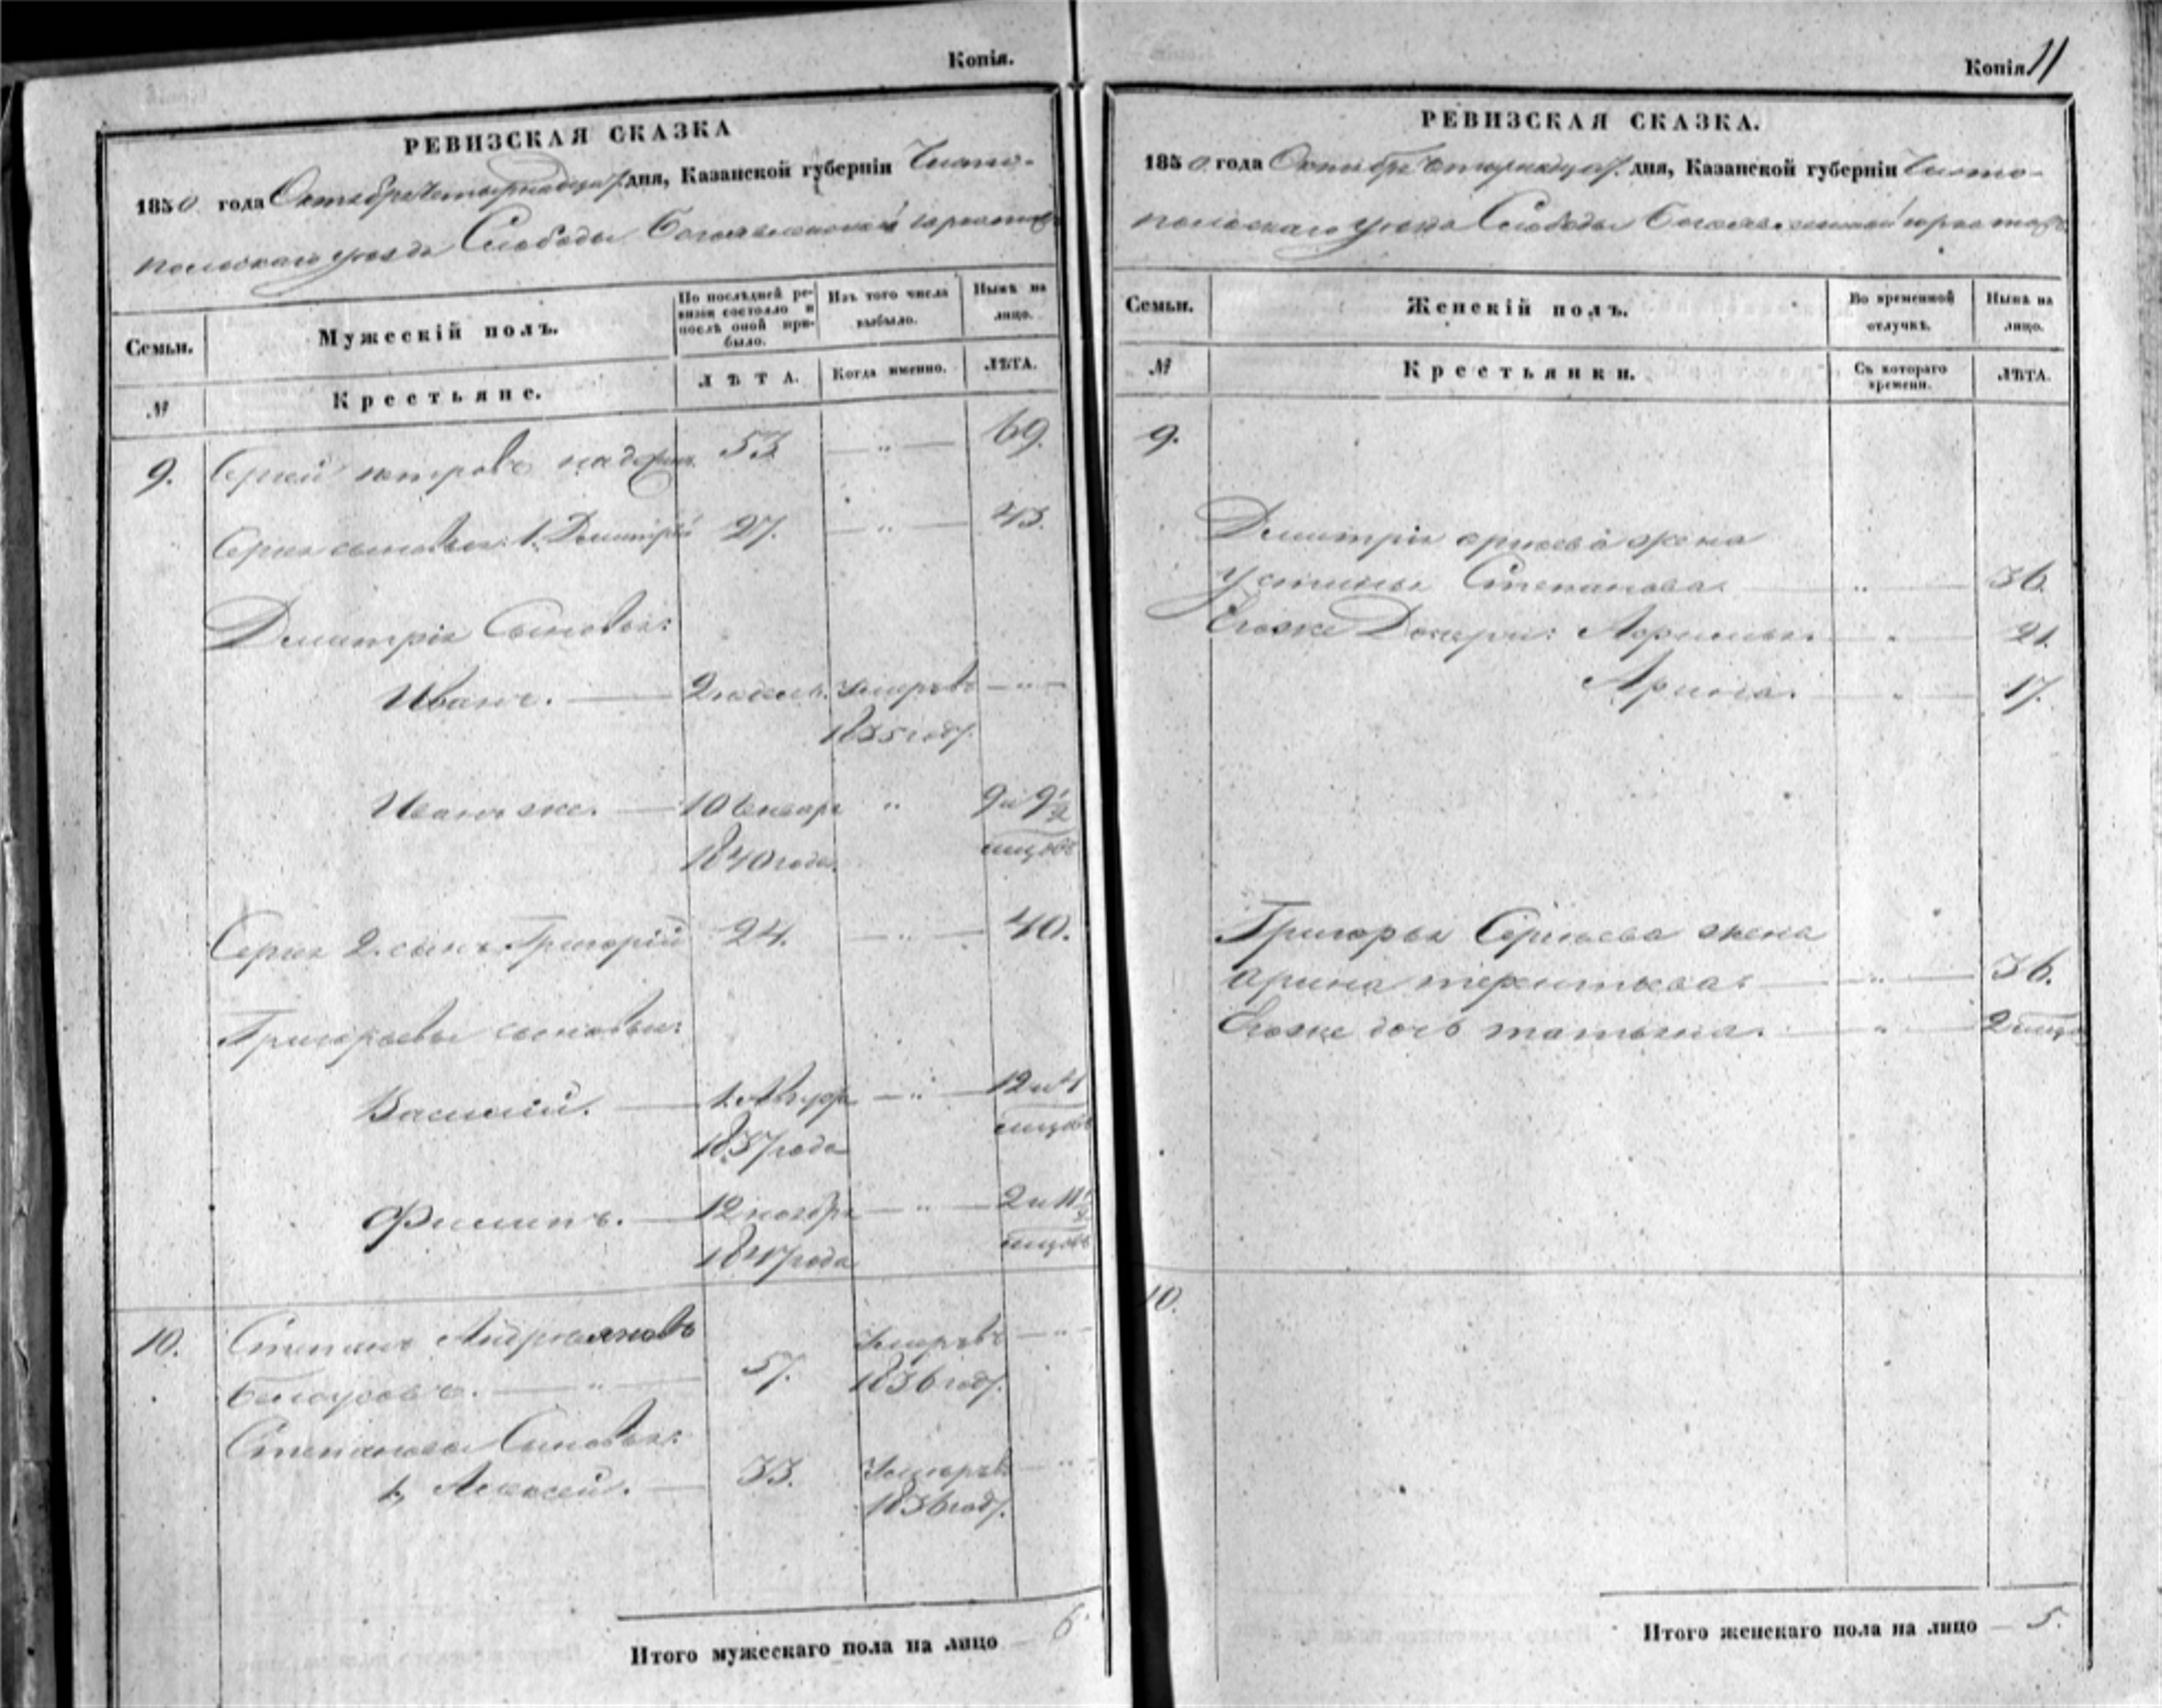 Копія.
РЕВИЗСКАЯ СКАЗКА
1850 года Октября четырнадцат. дня, Казанской губерніи Чисто-
польскаго уезда Слободы Богоявленской
Семьи.
Мужескій полъ.
По послѣдней ре-
визіи состояло и
послѣ оной при-
было.
Изъ того числа
выбыло.
Нынѣ на
лицо.
№
Крестьяне.
ЛѢТА.
Когда именно.
ЛѢТА.
9. Сергей петровъ 53 — „ — 69.
Сергея сыновья: 1. Дмитрій 27. — „ — 43.
Дмитрія Сыновья:
Иванъ. — 2 недель. Умеръ — „ —
1835 году.
Иванъ же. — 10 Генваря „ 9 и 9 1/2
1840 года. месяцовъ
Сергея 2. сынъ Григорій 24. — „ — 40.
Григорьевы сыновья:
Василий. — 1. Август — „ — 12 и
1837 года месяцовъ
Филипъ. — 12 ноября — „ — 2 и 11 1/2
1847 года месяцовъ
10. Степанъ Андреяновъ Умеръ — „ —
Белоусовъ. — „ — 57. 1836 году.
Степановы Сыновья:
1, Алексей. — 33. Умеръ — „ —
1836 году.
Итого мужескаго пола на лицо — 6
Копія. 11
РЕВИЗСКАЯ СКАЗКА.
1850 года Октября четырнадцат. дня, Казанской губерніи Чисто-
польскаго уезда Слободы Богоявленской
Семьи.
Женскій полъ.
Во временной
отлучкѣ.
Нынѣ на
лицо.
№
Крестьянки.
Съ котораго
времени.
ЛѢТА.
9.
Дмитрія сергеева жена
Устинья Степанова — „ — 36.
Егоже Дочери: Афимья. — „ — 21.
Арина. — „ — 17.
Григорья Сергеева жена
арина терентьева. — „ — 36.
Егоже дочь татьяна. — „ — 2 месяца
10.
Итого женскаго пола на лицо — 5.